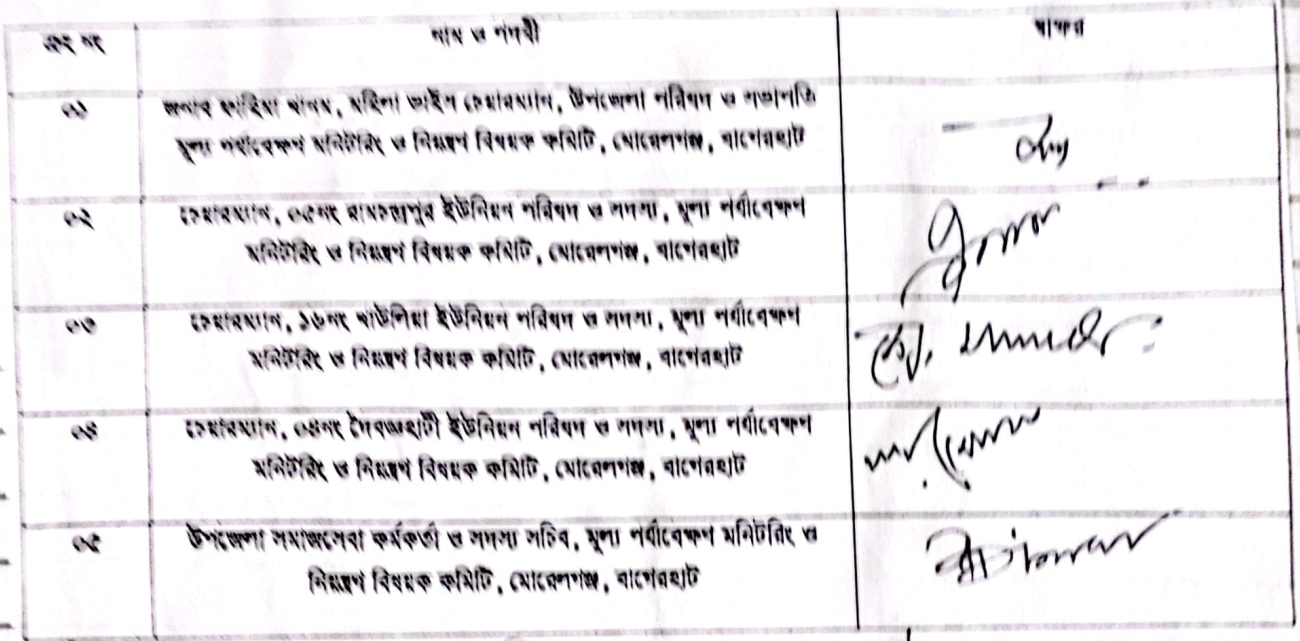 ক্রঃ নং নাম ও পদবী স্বাক্ষর
০১ জনাব ফাহিমা খানম, মহিলা ভাইস চেয়ারম্যান, উপজেলা পরিষদ ও সভাপতি
মূল্য পর্যবেক্ষণ মনিটরিং ও নিয়ন্ত্রণ বিষয়ক কমিটি, মোরেলগঞ্জ, বাগেরহাট
০২ চেয়ারম্যান, ০৫নং রামচন্দ্রপুর ইউনিয়ন পরিষদ ও সদস্য, মূল্য পর্যবেক্ষণ
মনিটরিং ও নিয়ন্ত্রণ বিষয়ক কমিটি, মোরেলগঞ্জ, বাগেরহাট
০৩ চেয়ারম্যান, ১৬নং খাউলিয়া ইউনিয়ন পরিষদ ও সদস্য, মূল্য পর্যবেক্ষণ
মনিটরিং ও নিয়ন্ত্রণ বিষয়ক কমিটি, মোরেলগঞ্জ, বাগেরহাট
০৪ চেয়ারম্যান, ০৪নং দৈবজ্ঞহাটী ইউনিয়ন পরিষদ ও সদস্য, মূল্য পর্যবেক্ষণ
মনিটরিং ও নিয়ন্ত্রণ বিষয়ক কমিটি, মোরেলগঞ্জ, বাগেরহাট
০৫ উপজেলা সমাজসেবা কর্মকর্তা ও সদস্য সচিব, মূল্য পর্যবেক্ষণ মনিটরিং ও
নিয়ন্ত্রণ বিষয়ক কমিটি, মোরেলগঞ্জ, বাগেরহাট